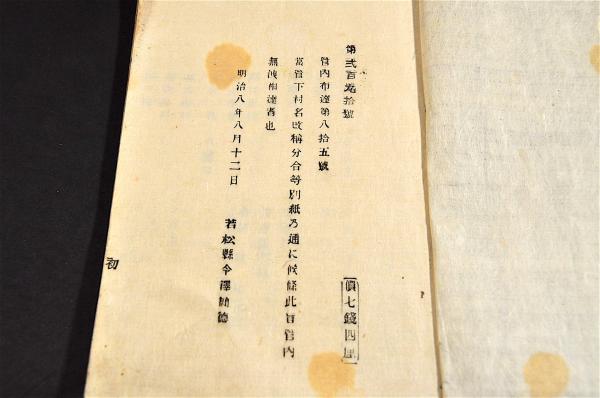 第弐百九拾號
管内布達第八拾五號
當管下村名改称分合等別紙乃通に候條此旨管内
無洩相達者也
明治八年八月十二日
若松縣令澤簡徳
價七錢四厘
初